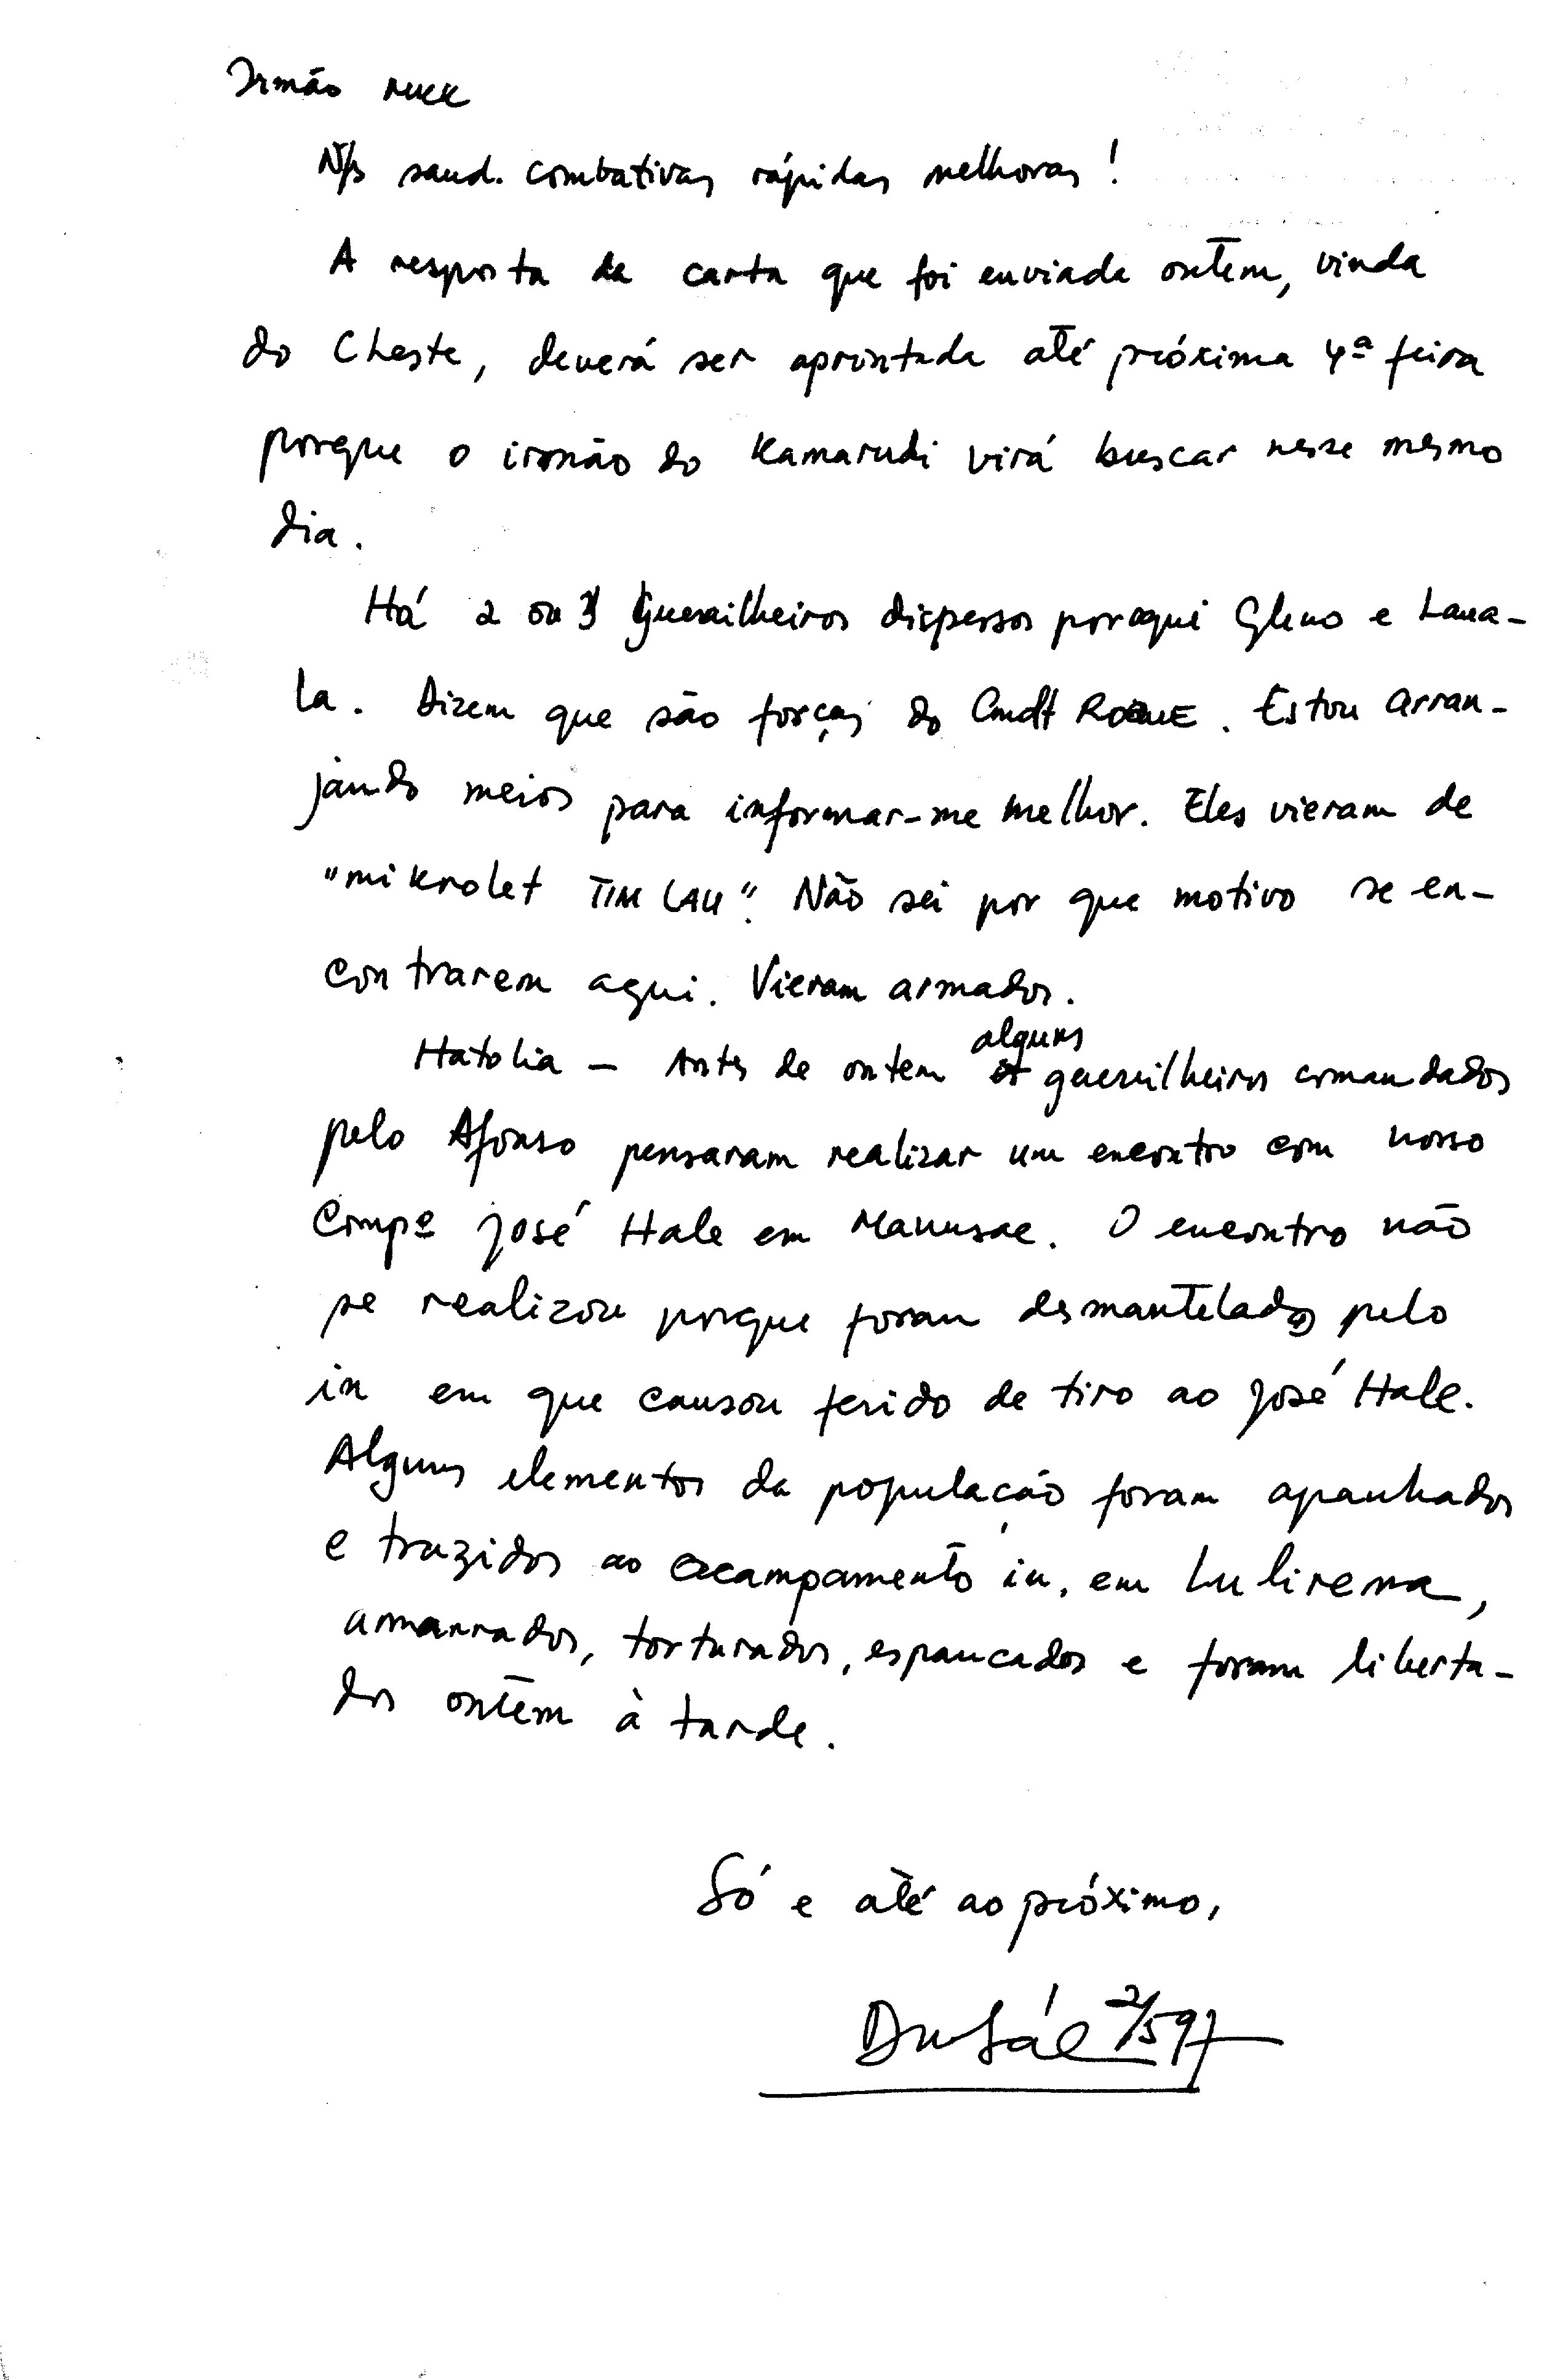 Irmão RUKK
N/s saud. combativas rápidas melhoras!
A resposta da carta que foi enviada ontem, vinda
do Cheste, deverá ser aprontada até próxima 4ª feira
porque o irmão do Kamarudi virá buscar nesse mesmo
dia.
Há 2 ou 3 guerrilheiros dispersos poraqui Gleno e Laua-
la. Dizem que são forças do Cmdt ROQUE. Estou arran-
jando meios para informar-me melhor. Eles vieram de
"mikrolet TIM LAU". Não sei por que motivo se en-
contrarem aqui. Vieram armados.
Hatolia - Antes de ontem alguns guerrilheiros comandados
pelo Afonso pensaram realizar um encontro com nosso
Compº José Hale em Manusae. O encontro não
se realizou porque foram desmantelados pelo
in em que causou ferido de tiro ao José Hale.
Alguns elementos da população foram apanhados
e trazidos ao acampamento in, em Lulirema,
amarrados, torturados, espancados e foram liberta-
dos ontem à tarde.
Só e até ao próximo,
DuSáe 2/5 97